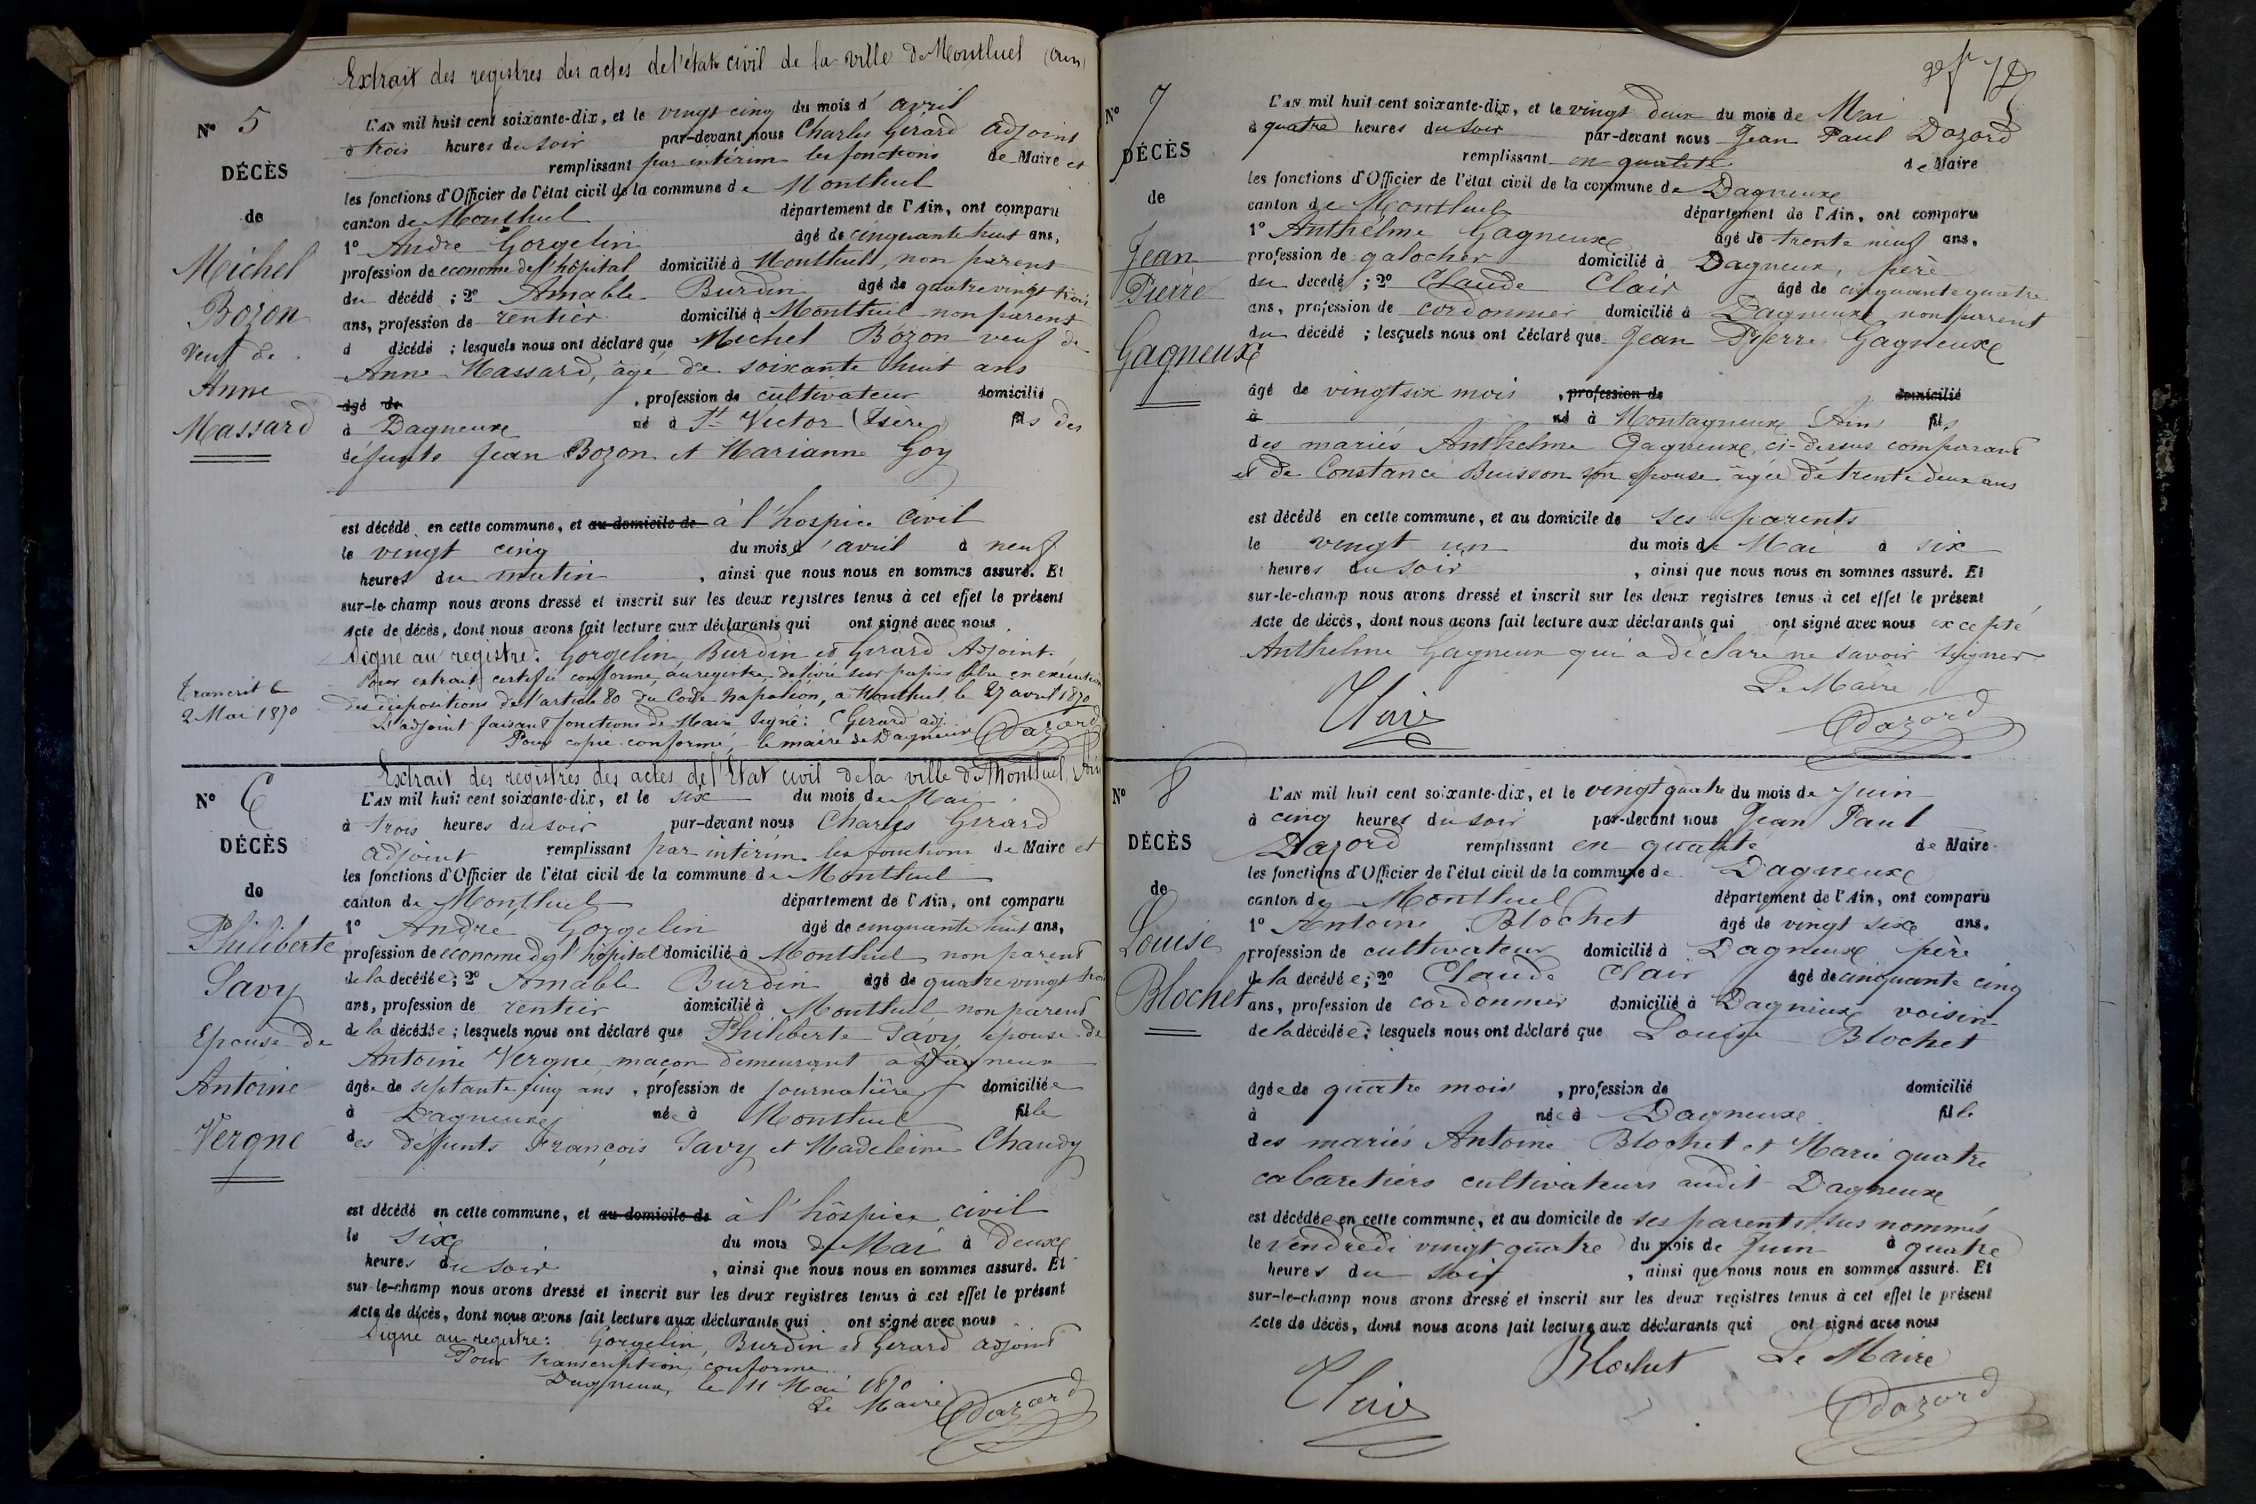 Extrait des registres des actes de l'état civil de la ville de Montluel (Ain)
N° 5
DÉCÈS
de
Michel
Bozon
Veuf de
Anne
Massard
L'AN mil huit cent soixante-dix, et le vingt cinq du mois d'avril
à trois heures du soir par-devant nous Charles Gérard Adjoint
remplissant par intérim les fonctions de Maire et
les fonctions d'Officier de l'état civil de la commune de Montluel
canton de Montluel département de l'Ain, ont comparu
1° André Gorgelin âgé de cinquante huit ans,
profession de econome de l'hôpital domicilié à Montluel, non parent
du décédé ; 2° Amable Burdin âgé de quatre vingt trois
ans, profession de rentier domicilié à Montluel non parent
d décédé ; lesquels nous ont déclaré que Michel Bozon veuf de
Anne Massard, âgé de soixante huit ans
âgé de , profession de cultivateur domicilié
à Dagneux né à St Victor (Isère) fils des
défunts Jean Bozon et Marianne Goy
est décédé en cette commune, et au domicile de à l'hospice civil
le vingt cinq du mois d'avril à neuf
heures du matin , ainsi que nous nous en sommes assuré. Et
sur-le-champ nous avons dressé et inscrit sur les deux registres tenus à cet effet le présent
Acte de décès, dont nous avons fait lecture aux déclarants qui ont signé avec nous
Signé au registre: Gorgelin, Burdin et Gérard Adjoint.
Pour extrait certifié conforme au registre, délivré sur papier libre en exécution
des dispositions de l'article 80 du Code Napoléon, à Montluel le 27 avril 1870
L'adjoint faisant fonctions de Maire Signé: C Gerard adj.
Pour copie conforme, le maire de Dagneux Dazord
Transcrit le
2 Mai 1870
Extrait des registres des actes de l'Etat civil de la ville de Montluel, Ain
N° 6
DÉCÈS
de
Philiberte
Savy
Epouse de
Antoine
Vergne
L'AN mil huit cent soixante-dix, et le six du mois de Mai
à trois heures du soir par-devant nous Charles Gérard
adjoint remplissant par intérim les fonctions de Maire et
les fonctions d'Officier de l'état civil de la commune de Montluel
canton de Montluel département de l'Ain, ont comparu
1° André Gorgelin âgé de cinquante huit ans,
profession de econome de l'hôpital domicilié à Montluel non parent
de la décédée; 2° Amable Burdin âgé de quatre vingt trois
ans, profession de rentier domicilié à Montluel non parent
de la décédée ; lesquels nous ont déclaré que Philiberte Savy épouse de
Antoine Vergne, maçon demeurant à Dagneux
âgée de septante cinq ans , profession de journalière domiciliée
à Dagneux née à Montluel fille
des deffunts François Savy et Madeleine Chaudy
est décédé en cette commune, et au domicile de à l'hospice civil
le six du mois de Mai à deux
heures du soir , ainsi que nous nous en sommes assuré. Et
sur-le-champ nous avons dressé et inscrit sur les deux registres tenus à cet effet le présent
Acte de décès, dont nous avons fait lecture aux déclarants qui ont signé avec nous
Signé au registre: Gorgelin, Burdin et Gerard adjoint
Pour transcription conforme
Dagneux, le 11 Mai 1870
Le Maire Dazord
N° 7
DÉCÈS
de
Jean
Pierre
Gagneux
L'AN mil huit cent soixante-dix, et le vingt deux du mois de Mai
à quatre heures du soir par-devant nous Jean Paul Dazord
remplissant en qualité de Maire
les fonctions d'Officier de l'état civil de la commune de Dagneux
canton de Montluel département de l'Ain, ont comparu
1° Anthelme Gagneux âgé de trente neuf ans,
profession de galocher domicilié à Dagneux, père
du décédé ; 2° Claude Clair âgé de cinquante quatre
ans, profession de cordonnier domicilié à Dagneux non parrent
du décédé ; lesquels nous ont déclaré que Jean Pierre Gagneux
âgé de vingt six mois , profession de domicilié
à né à Montagneux (Ain) fils
des mariés Anthelme Gagneux, ci-dessus comparant
et de Constance Buisson son épouse âgée de trente deux ans
est décédé en cette commune, et au domicile de ses parents
le vingt un du mois de Mai à six
heures du soir , ainsi que nous nous en sommes assuré. Et
sur-le-champ nous avons dressé et inscrit sur les deux registres tenus à cet effet le présent
Acte de décès, dont nous avons fait lecture aux déclarants qui ont signé avec nous excepté
Anthelme Gagneux qui a déclaré ne savoir signer
Le Maire,
Clair Dazord
N° 8
DÉCÈS
de
Louise
Blochet
L'AN mil huit cent soixante-dix, et le vingt quatre du mois de Juin
à cinq heures du soir par-devant nous Jean Paul
Dazord remplissant en qualité de Maire
les fonctions d'Officier de l'état civil de la commune de Dagneux
canton de Montluel département de l'Ain, ont comparu
1° Antoine Blochet âgé de vingt six ans,
profession de cultivateur domicilié à Dagneux père
de la décédée; 2° Claude Clair âgé de cinquante cinq
ans, profession de cordonnier domicilié à Dagneux voisin
de la décédée; lesquels nous ont déclaré que Louise Blochet
âgée de quatre mois , profession de domicilié
à née à Dagneux fille
des mariés Antoine Blochet et Marie quatre
cabaretiers cultivateurs audit Dagneux
est décédée en cette commune, et au domicile de ses parents sus nommés
le Vendredi vingt quatre du mois de Juin à quatre
heures du soir , ainsi que nous nous en sommes assuré. Et
sur-le-champ nous avons dressé et inscrit sur les deux registres tenus à cet effet le présent
Acte de décès, dont nous avons fait lecture aux déclarants qui ont signé avec nous
Blochet Le Maire
Clair Dazord